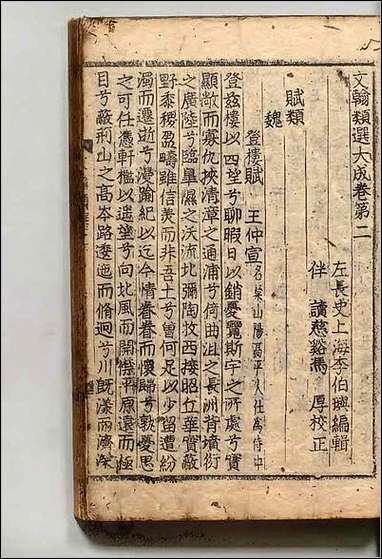 文翰類選大成卷第二
左長史上海李伯璵編輯
伴讀慈谿馮厚校正
賦類
魏
登樓賦 王仲宣 名粲山陽高平人仕爲侍中
登兹樓以四望兮聊暇日以銷憂覽斯宇之所處兮實
顯敞而寡仇挾清漳之通浦兮倚曲沮之長洲背墳衍
之廣陸兮臨臯隰之沃流北彌陶牧西接昭丘華實蔽
野黍稷盈疇雖信美而非吾土兮曾何足以少留遭紛
濁而遷逝兮漫踰紀以迄今情眷眷而懷歸兮孰憂思
之可任憑軒檻以遥望兮向北風而開襟平原遠而極
目兮蔽荆山之高岑路逶迤而脩迥兮川既漾而濟深